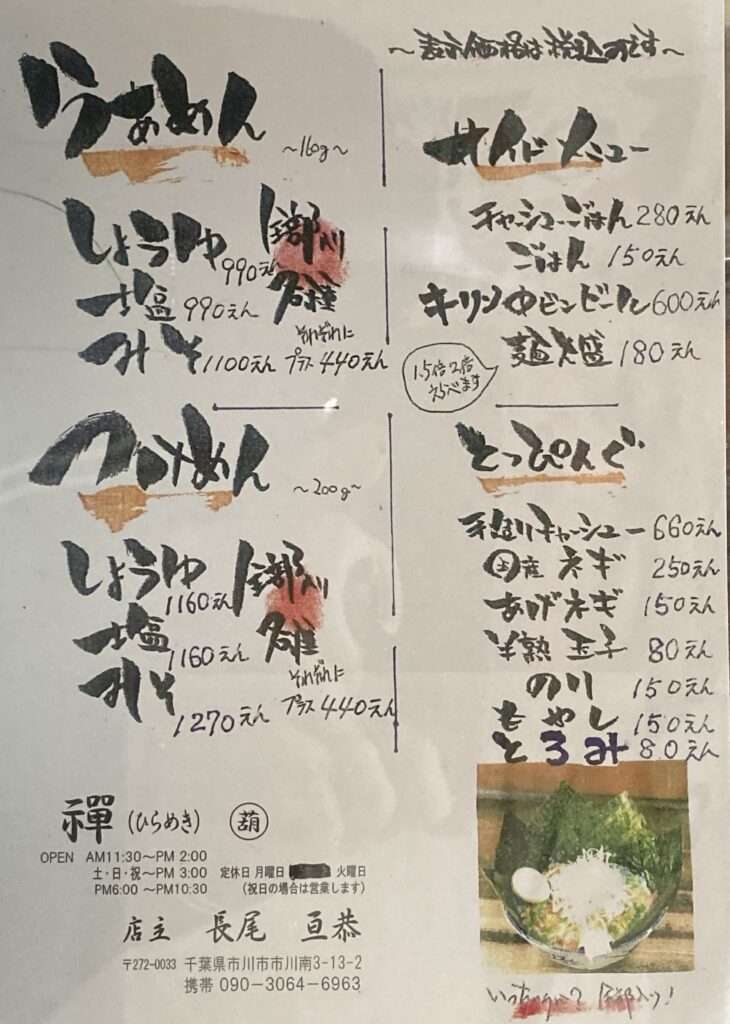 ～表示価格は税込みです～
らぁめん ～160g～
しょうゆ 990えん
塩 990えん
みそ 1100えん
全部入り
各種
それぞれに
プラス440えん
サイドメニュー
チャーシューごはん 280えん
ごはん 150えん
キリン中ビンビール 600えん
麺大盛 180えん
1.5倍 2倍
えらべます
つけめん ～200g～
しょうゆ 1160えん
塩 1160えん
みそ 1270えん
全部入り
各種
それぞれに
プラス440えん
とっぴんぐ
手造りチャーシュー 660えん
国産 ネギ 250えん
あげネギ 150えん
半熟 玉子 80えん
のり 150えん
もやし 150えん
とろみ 80えん
禪 (ひらめき) 葫
OPEN AM11:30～PM 2:00
土・日・祝～PM 3:00 定休日 月曜日 火曜日
PM6:00 ～PM10:30 (祝日の場合は営業します)
店主 長尾 亘恭
〒272-0033 千葉県市川市市川南3-13-2
携帯 090-3064-6963
全部入り!